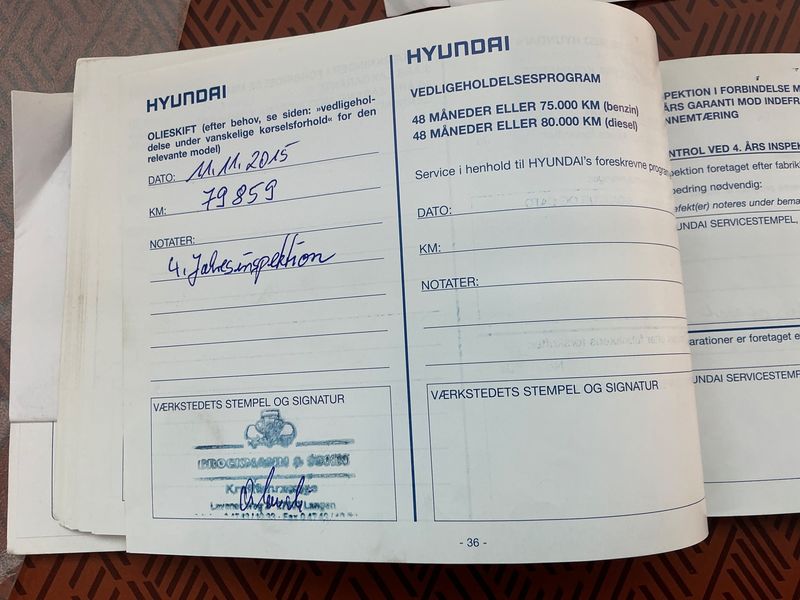 HYUNDAI
OLIESKIFT (efter behov, se siden: »vedligehol-
delse under vanskelige kørselsforhold« for den
relevante model)
DATO: 11.11.2015
KM: 79859
NOTATER:
4. Jahresinspektion
VÆRKSTEDETS STEMPEL OG SIGNATUR
BROCKMANN &
Langen
HYUNDAI
VEDLIGEHOLDELSESPROGRAM
48 MÅNEDER ELLER 75.000 KM (benzin)
48 MÅNEDER ELLER 80.000 KM (diesel)
Service i henhold til HYUNDAI's foreskrevne progra
DATO:
KM:
NOTATER:
VÆRKSTEDETS STEMPEL OG SIGNATUR
- 36 -
PEKTION I FORBINDELSE M
ÅRS GARANTI MOD INDEFR
NNEMTÆRING
NTROL VED 4. ÅRS INSPE
pektion foretaget efter fabrik
pedring nødvendig:
efekt(er) noteres under bema
UNDAI SERVICESTEMPEL,
arationer er foretaget e
UNDAI SERVICESTEMP